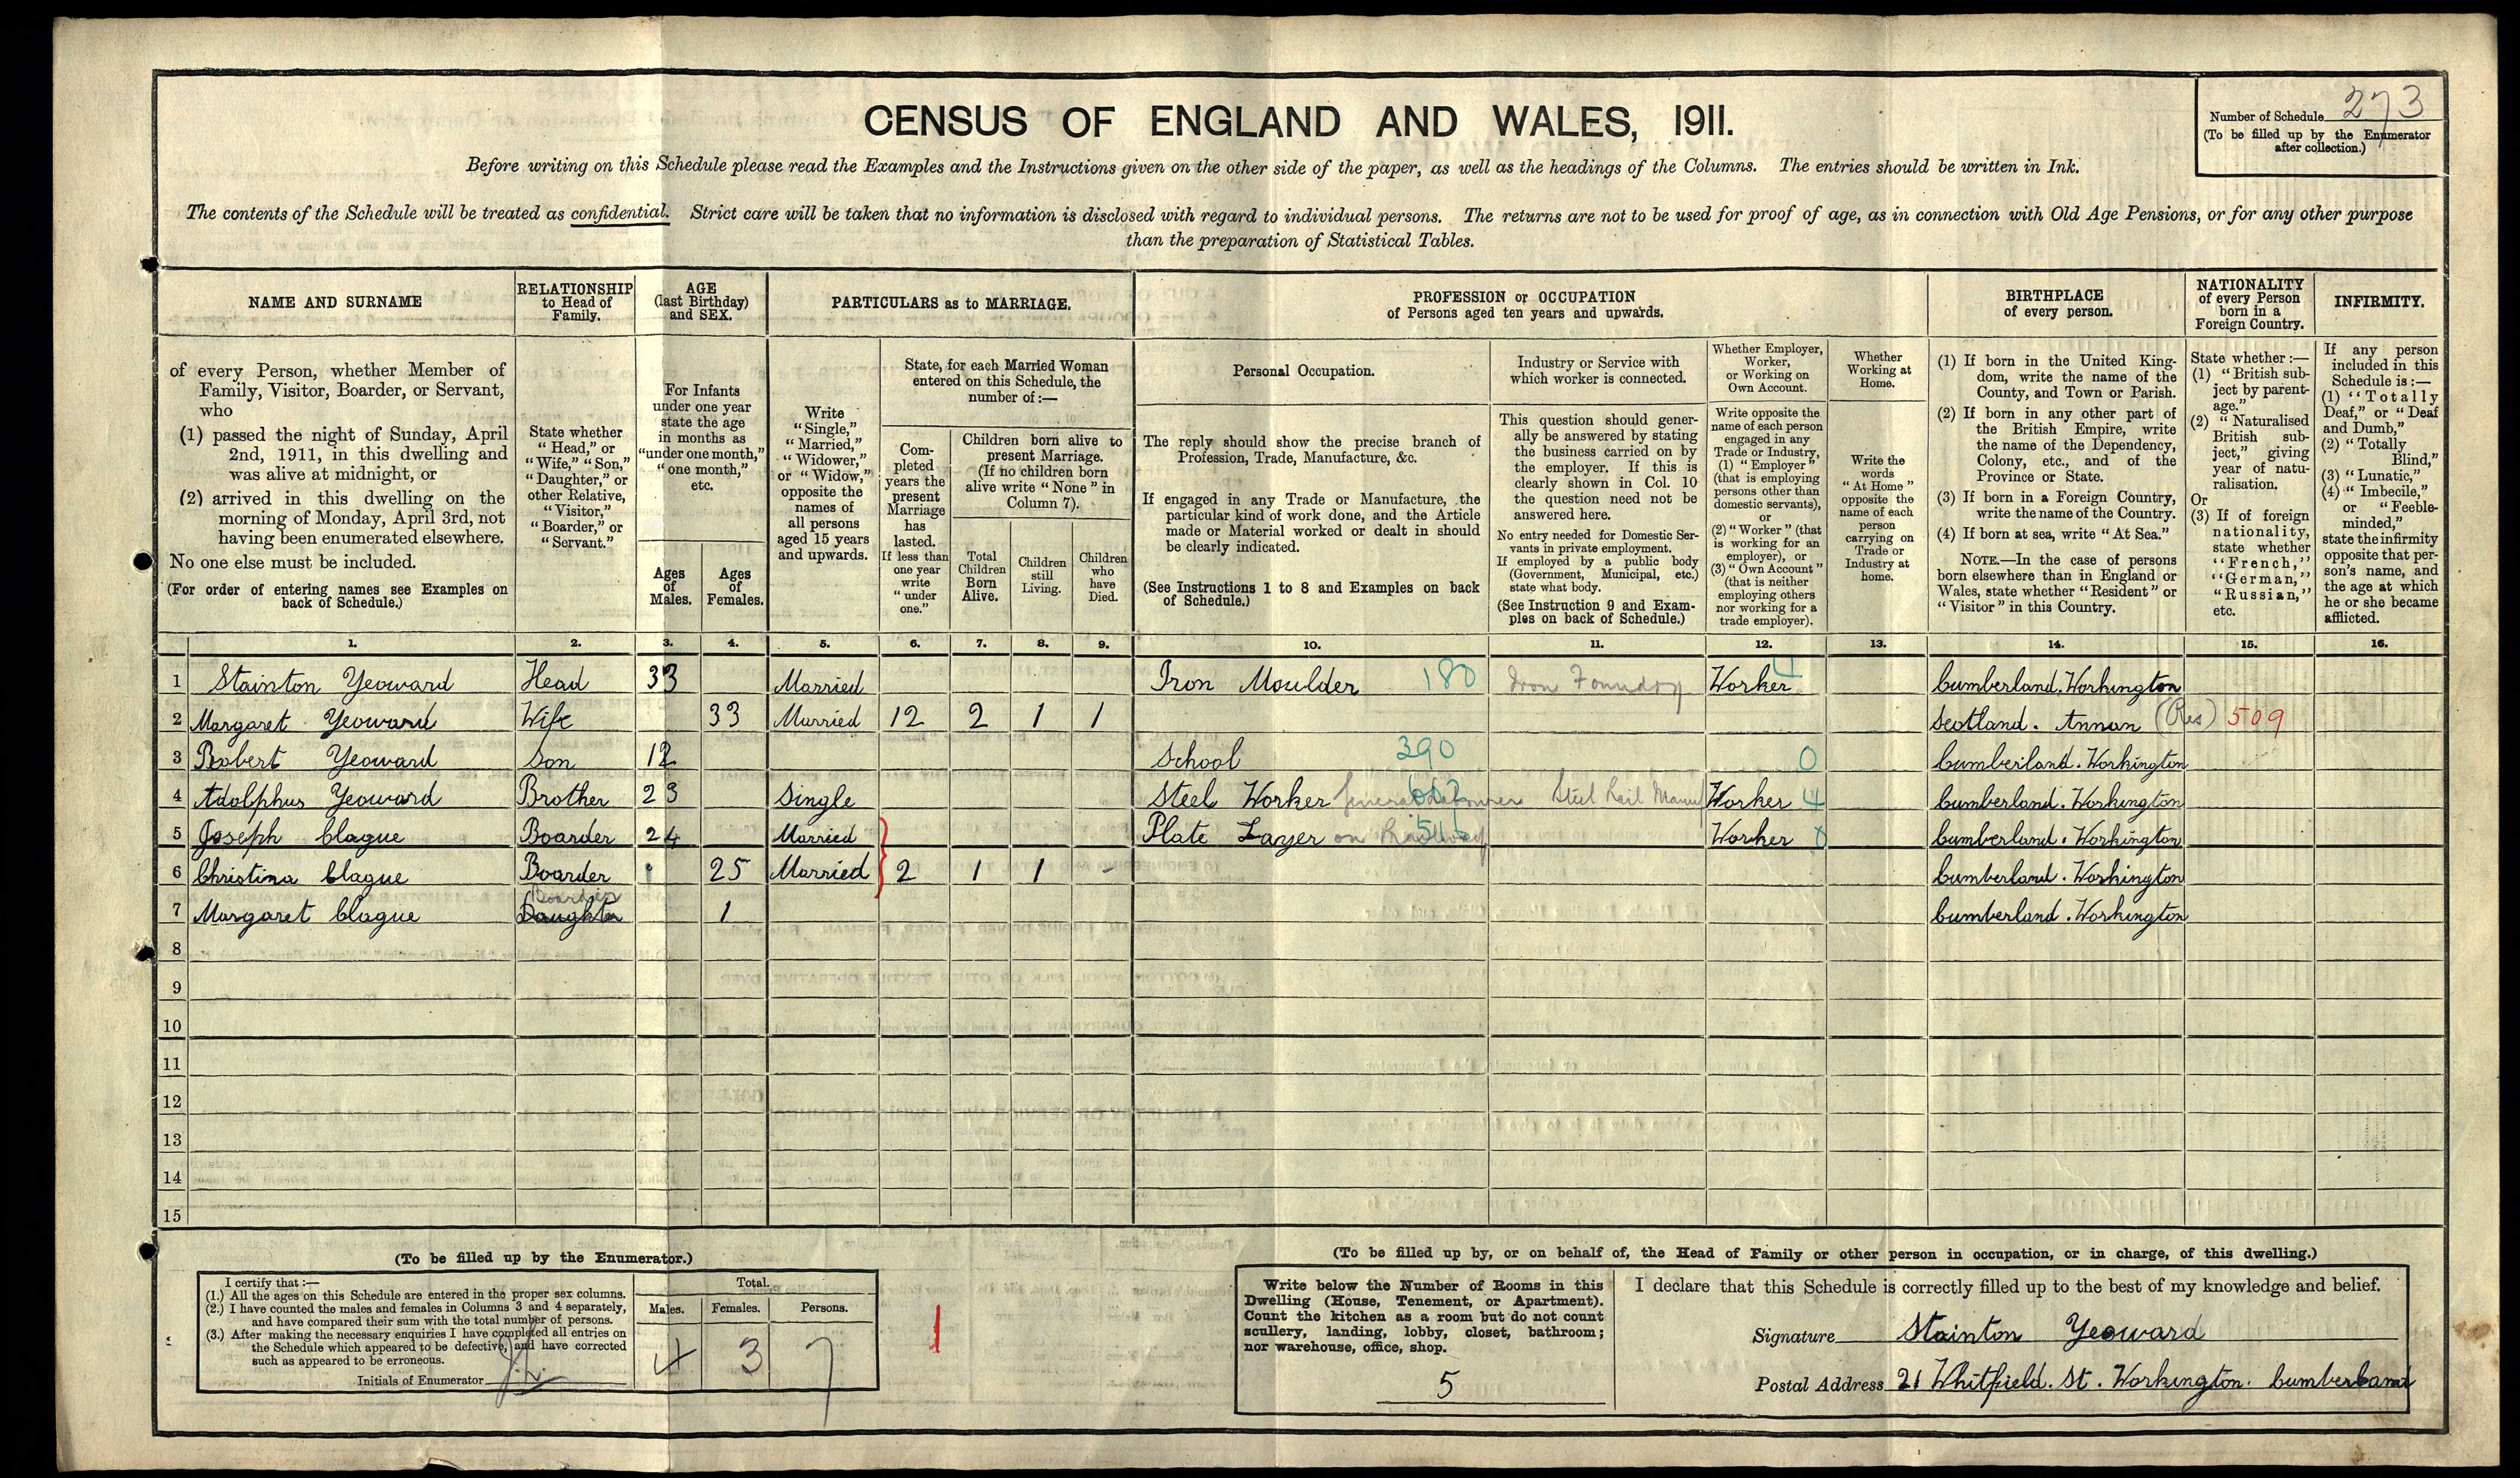 CENSUS OF ENGLAND AND WALES, 1911.
Number of Schedule 273
(To be filled up by the Enumerator
after collection.)
Before writing on this Schedule please read the Examples and the Instructions given on the other side of the paper, as well as the headings of the Columns. The entries should be written in Ink.
The contents of the Schedule will be treated as confidential. Strict care will be taken that no information is disclosed with regard to individual persons. The returns are not to be used for proof of age, as in connection with Old Age Pensions, or for any other purpose
than the preparation of Statistical Tables.
NAME AND SURNAME
of every Person, whether Member of
Family, Visitor, Boarder, or Servant,
who
(1) passed the night of Sunday, April
2nd, 1911, in this dwelling and
was alive at midnight, or
(2) arrived in this dwelling on the
morning of Monday, April 3rd, not
having been enumerated elsewhere.
No one else must be included.
(For order of entering names see Examples on
back of Schedule.)
RELATIONSHIP
to Head of
Family.
State whether
"Head," or
"Wife," "Son,"
"Daughter," or
other Relative,
"Visitor,"
"Boarder," or
"Servant."
AGE
(last Birthday)
and SEX.
For Infants
under one year
state the age
in months as
"under one month,"
"one month,"
etc.
Ages
of
Males.
Ages
of
Females.
PARTICULARS as to MARRIAGE.
Write
"Single,"
"Married,"
"Widower,"
or "Widow,"
opposite the
names of
all persons
aged 15 years
and upwards.
State, for each Married Woman
entered on this Schedule, the
number of:—
Com-
pleted
years the
present
Marriage
has
lasted.
If less than
one year
write
"under
one."
Children born alive to
present Marriage.
(If no children born
alive write "None" in
Column 7).
Total
Children
Born
Alive.
Children
still
Living.
Children
who
have
Died.
PROFESSION or OCCUPATION
of Persons aged ten years and upwards.
Personal Occupation.
The reply should show the precise branch of
Profession, Trade, Manufacture, &c.
If engaged in any Trade or Manufacture, the
particular kind of work done, and the Article
made or Material worked or dealt in should
be clearly indicated.
(See Instructions 1 to 8 and Examples on back
of Schedule.)
Industry or Service with
which worker is connected.
This question should gener-
ally be answered by stating
the business carried on by
the employer. If this is
clearly shown in Col. 10
the question need not be
answered here.
No entry needed for Domestic Ser-
vants in private employment.
If employed by a public body
(Government, Municipal, etc.)
state what body.
(See Instruction 9 and Exam-
ples on back of Schedule.)
Whether Employer,
Worker,
or Working on
Own Account.
Write opposite the
name of each person
engaged in any
Trade or Industry,
(1) "Employer"
(that is employing
persons other than
domestic servants),
or
(2) "Worker" (that
is working for an
employer), or
(3) "Own Account"
(that is neither
employing others
nor working for a
trade employer).
Whether
Working at
Home.
Write the
words
"At Home"
opposite the
name of each
person
carrying on
Trade or
Industry at
home.
BIRTHPLACE
of every person.
(1) If born in the United King-
dom, write the name of the
County, and Town or Parish.
(2) If born in any other part of
the British Empire, write
the name of the Dependency,
Colony, etc., and of the
Province or State.
(3) If born in a Foreign Country,
write the name of the Country.
(4) If born at sea, write "At Sea."
NOTE.—In the case of persons
born elsewhere than in England or
Wales, state whether "Resident" or
"Visitor" in this Country.
NATIONALITY
of every Person
born in a
Foreign Country.
State whether:—
(1) "British sub-
ject by parent-
age."
(2) "Naturalised
British sub-
ject," giving
year of natu-
ralisation.
Or
(3) If of foreign
nationality,
state whether
"French,"
"German,"
"Russian,"
etc.
INFIRMITY.
If any person
included in this
Schedule is:—
(1) "Totally
Deaf," or "Deaf
and Dumb,"
(2) "Totally
Blind,"
(3) "Lunatic,"
(4) "Imbecile,"
or "Feeble-
minded,"
state the infirmity
opposite that per-
son's name, and
the age at which
he or she became
afflicted.
1. 2. 3. 4. 5. 6. 7. 8. 9. 10. 11. 12. 13. 14. 15. 16.
1 Stainton Yeoward Head 33 Married Iron Moulder 180 Iron Foundry Worker 4 Cumberland. Workington
2 Margaret Yeoward Wife 33 Married 12 2 1 1 Scotland. Annan (Res) 509
3 Robert Yeoward Son 12 School 390 0 Cumberland. Workington
4 Adolphus Yeoward Brother 23 Single Steel Worker General Labourer Steel Rail Manuf Worker 4 Cumberland. Workington
5 Joseph Clague Boarder 24 Married Plate Layer on Railway 516 Worker 0 Cumberland. Workington
6 Christina Clague Boarder 25 Married 2 1 1 - Cumberland. Workington
Boarder
7 Margaret Clague Daughter 1 Cumberland. Workington
8
9
10
11
12
13
14
15
(To be filled up by the Enumerator.)
I certify that:—
(1.) All the ages on this Schedule are entered in the proper sex columns.
(2.) I have counted the males and females in Columns 3 and 4 separately,
and have compared their sum with the total number of persons.
(3.) After making the necessary enquiries I have completed all entries on
the Schedule which appeared to be defective, and have corrected
such as appeared to be erroneous.
Initials of Enumerator
Total.
Males. Females. Persons.
4 3 7
1
(To be filled up by, or on behalf of, the Head of Family or other person in occupation, or in charge, of this dwelling.)
Write below the Number of Rooms in this
Dwelling (House, Tenement, or Apartment).
Count the kitchen as a room but do not count
scullery, landing, lobby, closet, bathroom;
nor warehouse, office, shop.
5
I declare that this Schedule is correctly filled up to the best of my knowledge and belief.
Signature Stainton Yeoward
Postal Address 21 Whitfield. St. Workington. Cumberland